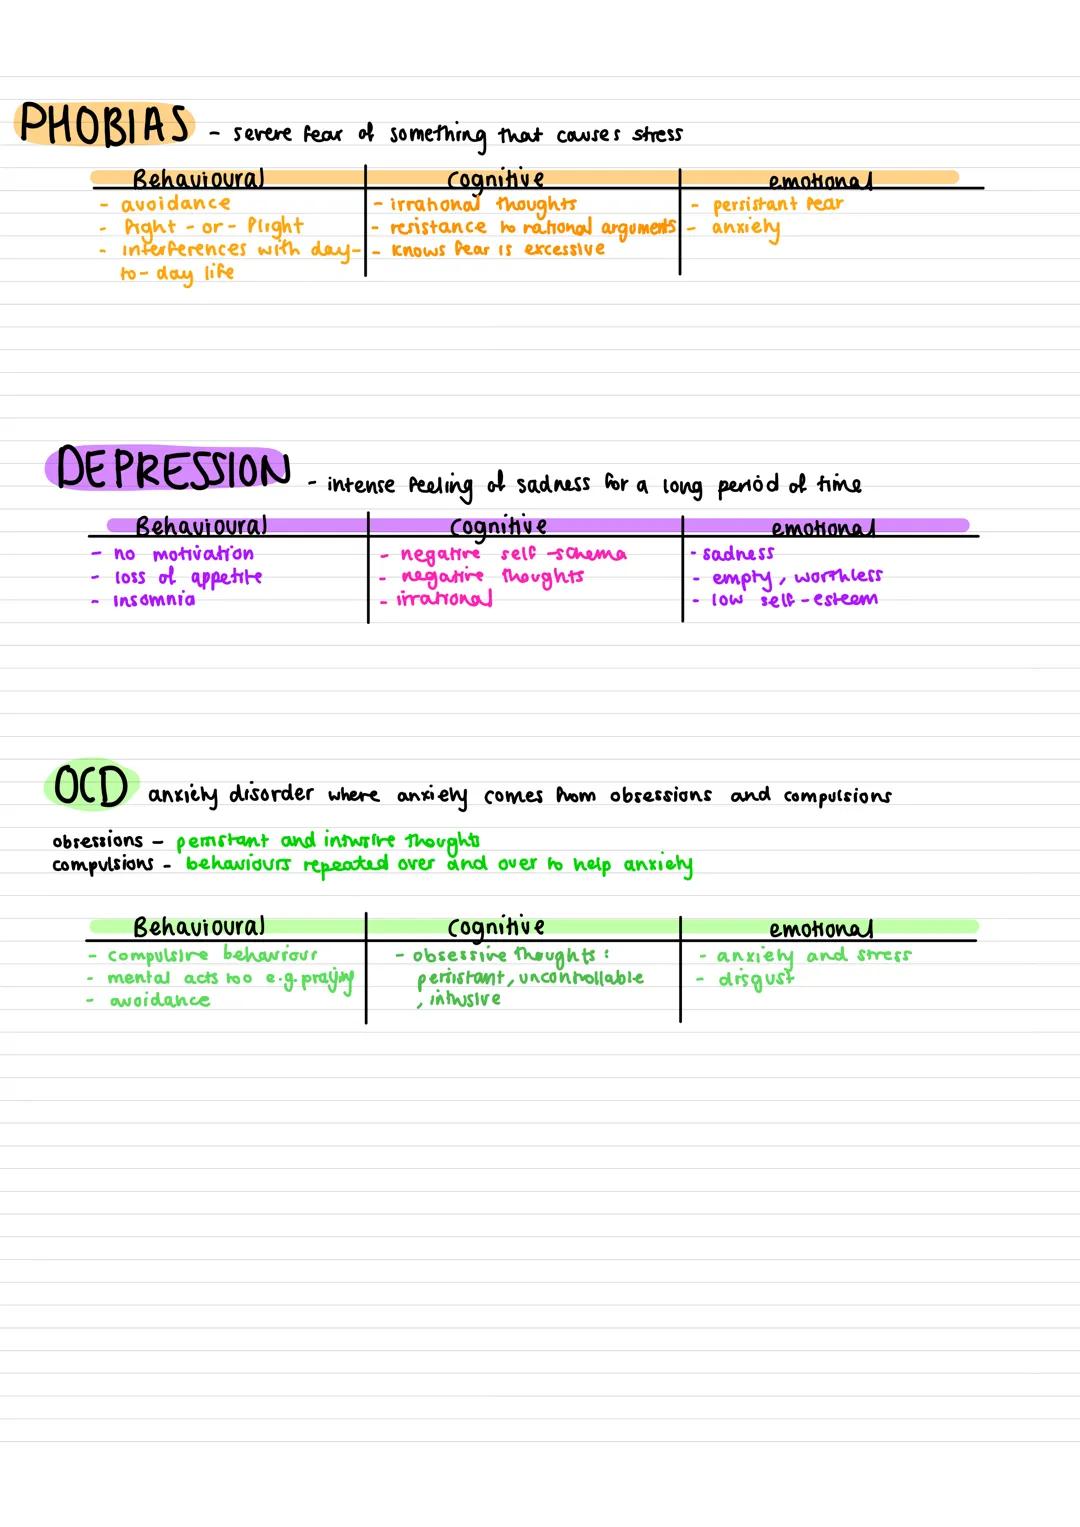 PHOBIAS - severe fear of something that causes stress
Behavioural Cognitive emotional
- avoidance - irrational thoughts - persistant fear
- fight - or - flight - resistance to rational arguments - anxiety
- interferences with day- - knows fear is excessive
to - day life
DEPRESSION - intense feeling of sadness for a long period of time
Behavioural Cognitive emotional
- no motivation - negative self -schema - sadness
- loss of appetite - negative thoughts - empty, worthless
- insomnia - irrational - low self - esteem
OCD anxiety disorder where anxiety comes from obsessions and compulsions
obsessions - persistant and intrusive thoughts
compulsions - behaviours repeated over and over to help anxiety
Behavioural Cognitive emotional
- compulsive behaviour - obsessive thoughts : - anxiety and stress
- mental acts too e.g. praying persistant, uncontrollable - disgust
- avoidance , intrusive